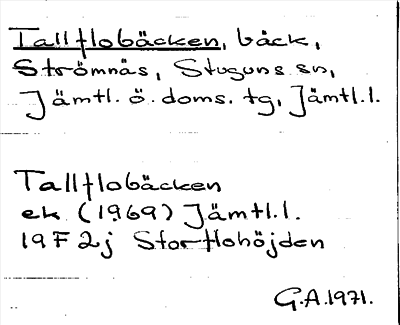 Tallflobäcken, bäck,
Strömnäs, Stuguns sn,
Jämtl. ö. doms. tg, Jämtl.l.
Tallflobäcken
ek (1969) Jämtl.l.
19F 2j Storflohöjden
G.A.1971.